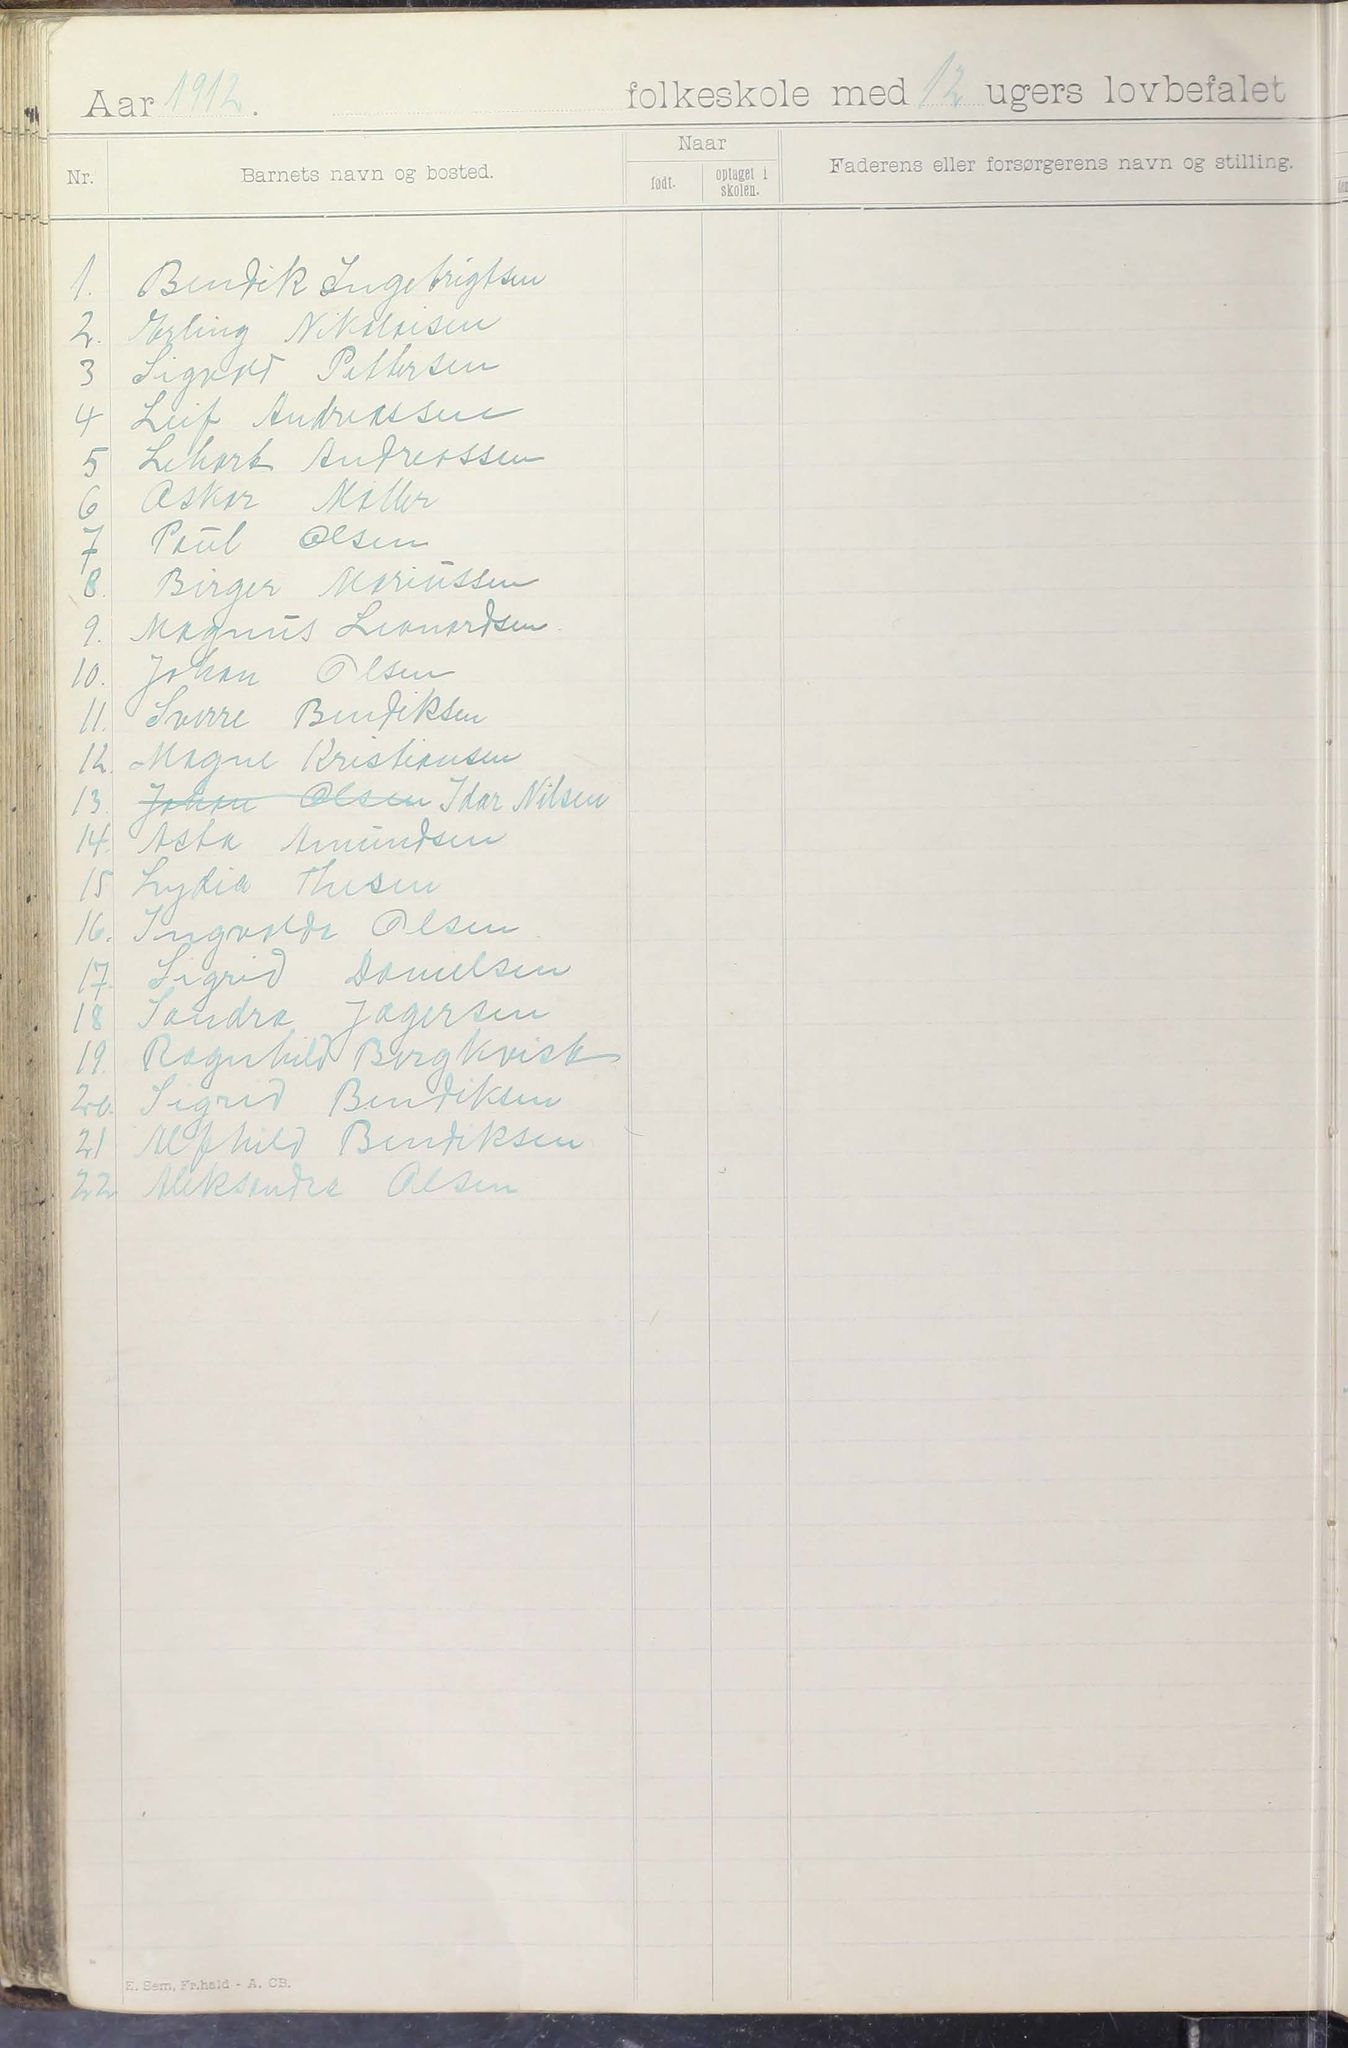 Aar 1912. folkeskole med 12 ugers lovbefalet
Nr. Barnets navn og bosted. Naar Faderens eller forsørgerens navn og stilling.
født. optaget i skolen.
1. Bendik Ingebrigtsen
2. Erling Nikolaisen
3 Sigvald Pettersen
4 Leif Andreassen
5 Lehart Andreassen
6 Oskar Møller
7 Paul Olsen
8. Birger Mariussen
9. Magnus Leonardsen.
10. Johan Olsen
11. Sverre Bendiksen
12. Magne Kristiansen
13. Johan Olsen Idar Nilsen
14. Asta Amundsen
15 Lydia Thesen
16. Ingvalda Olsen
17. Sigrid Danielsen
18 Sandra Jagersen
19. Ragnhild Bergkvist
20. Sigrid Bendiksen
21 Alfhild Bendiksen
22 Aleksandra Olsen
E. Sem, Fr.hald - A. CB.